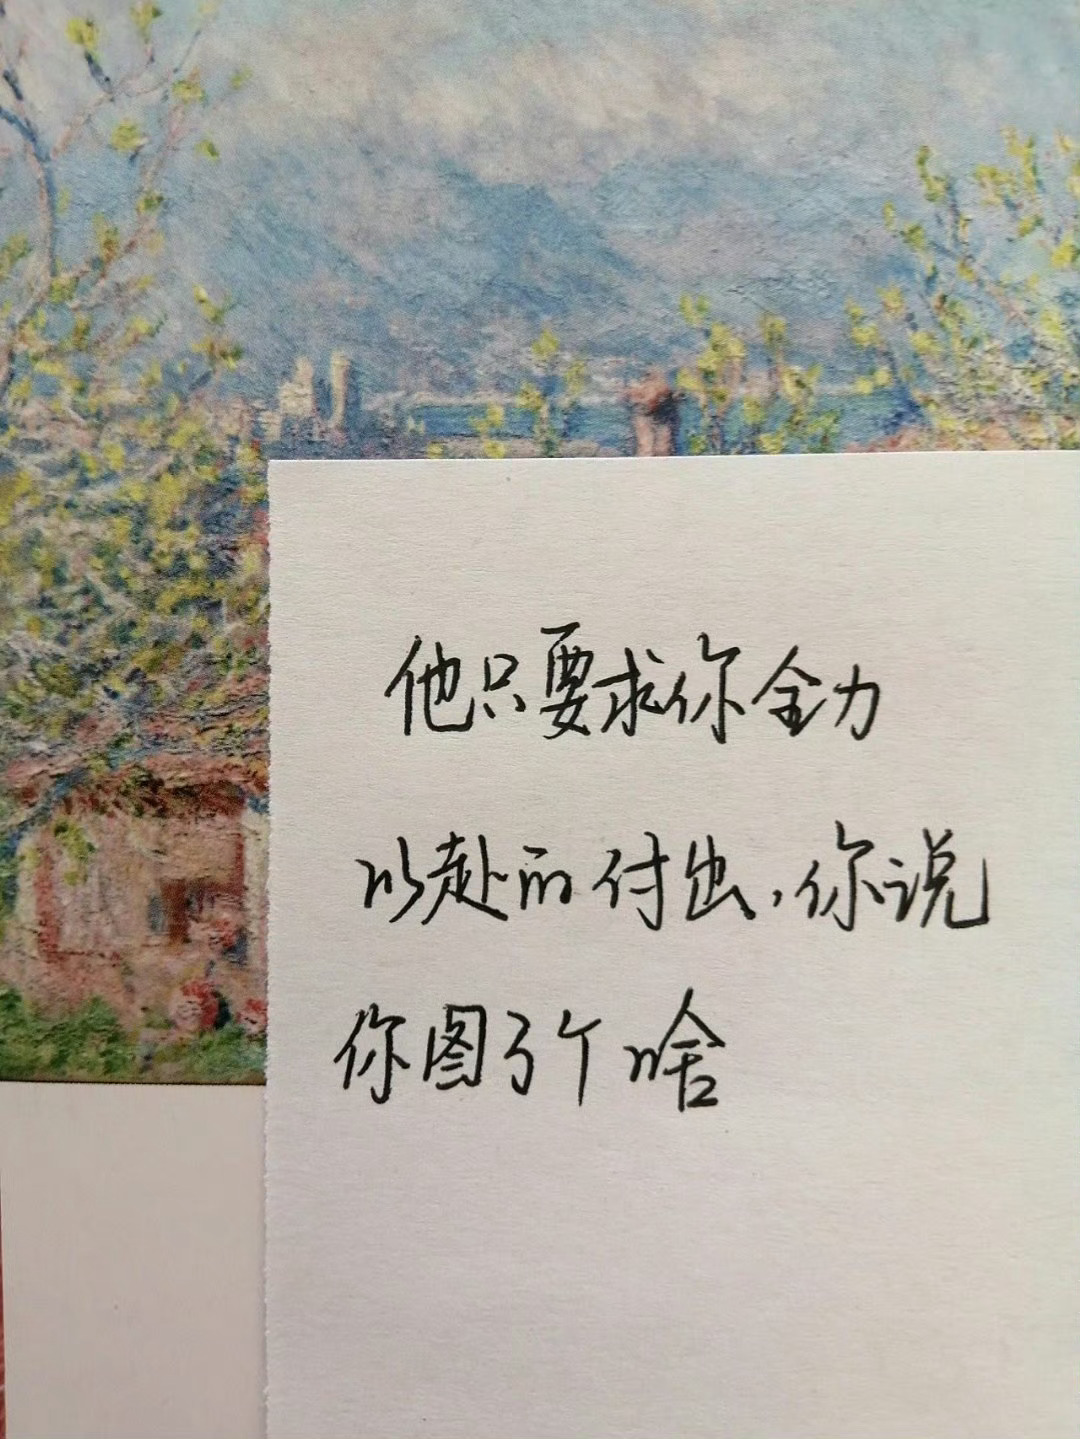 他只要求你全力
以赴的付出，你说
你图了个啥